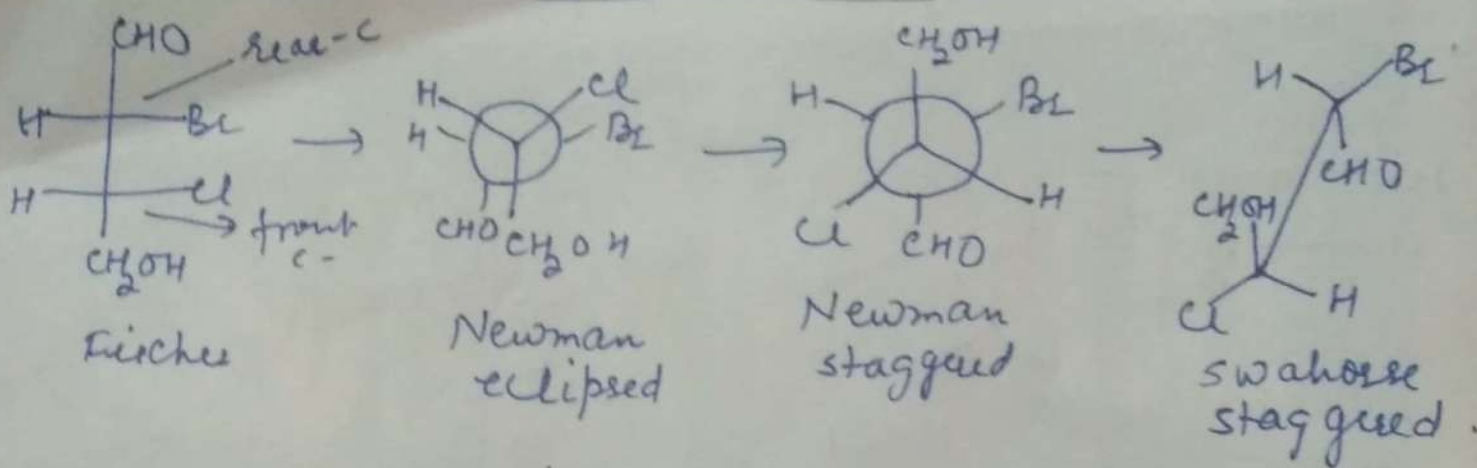 CHO
rear-C
H
Br
H
Cl
front
C-
CH2OH
Fischer
→
H
Cl
H
Br
CHO
CH2OH
Newman
eclipsed
→
CH2OH
H
Br
Cl
H
CHO
Newman
staggered
→
H
Br
CHO
CH2OH
Cl
H
swahorse
staggered.